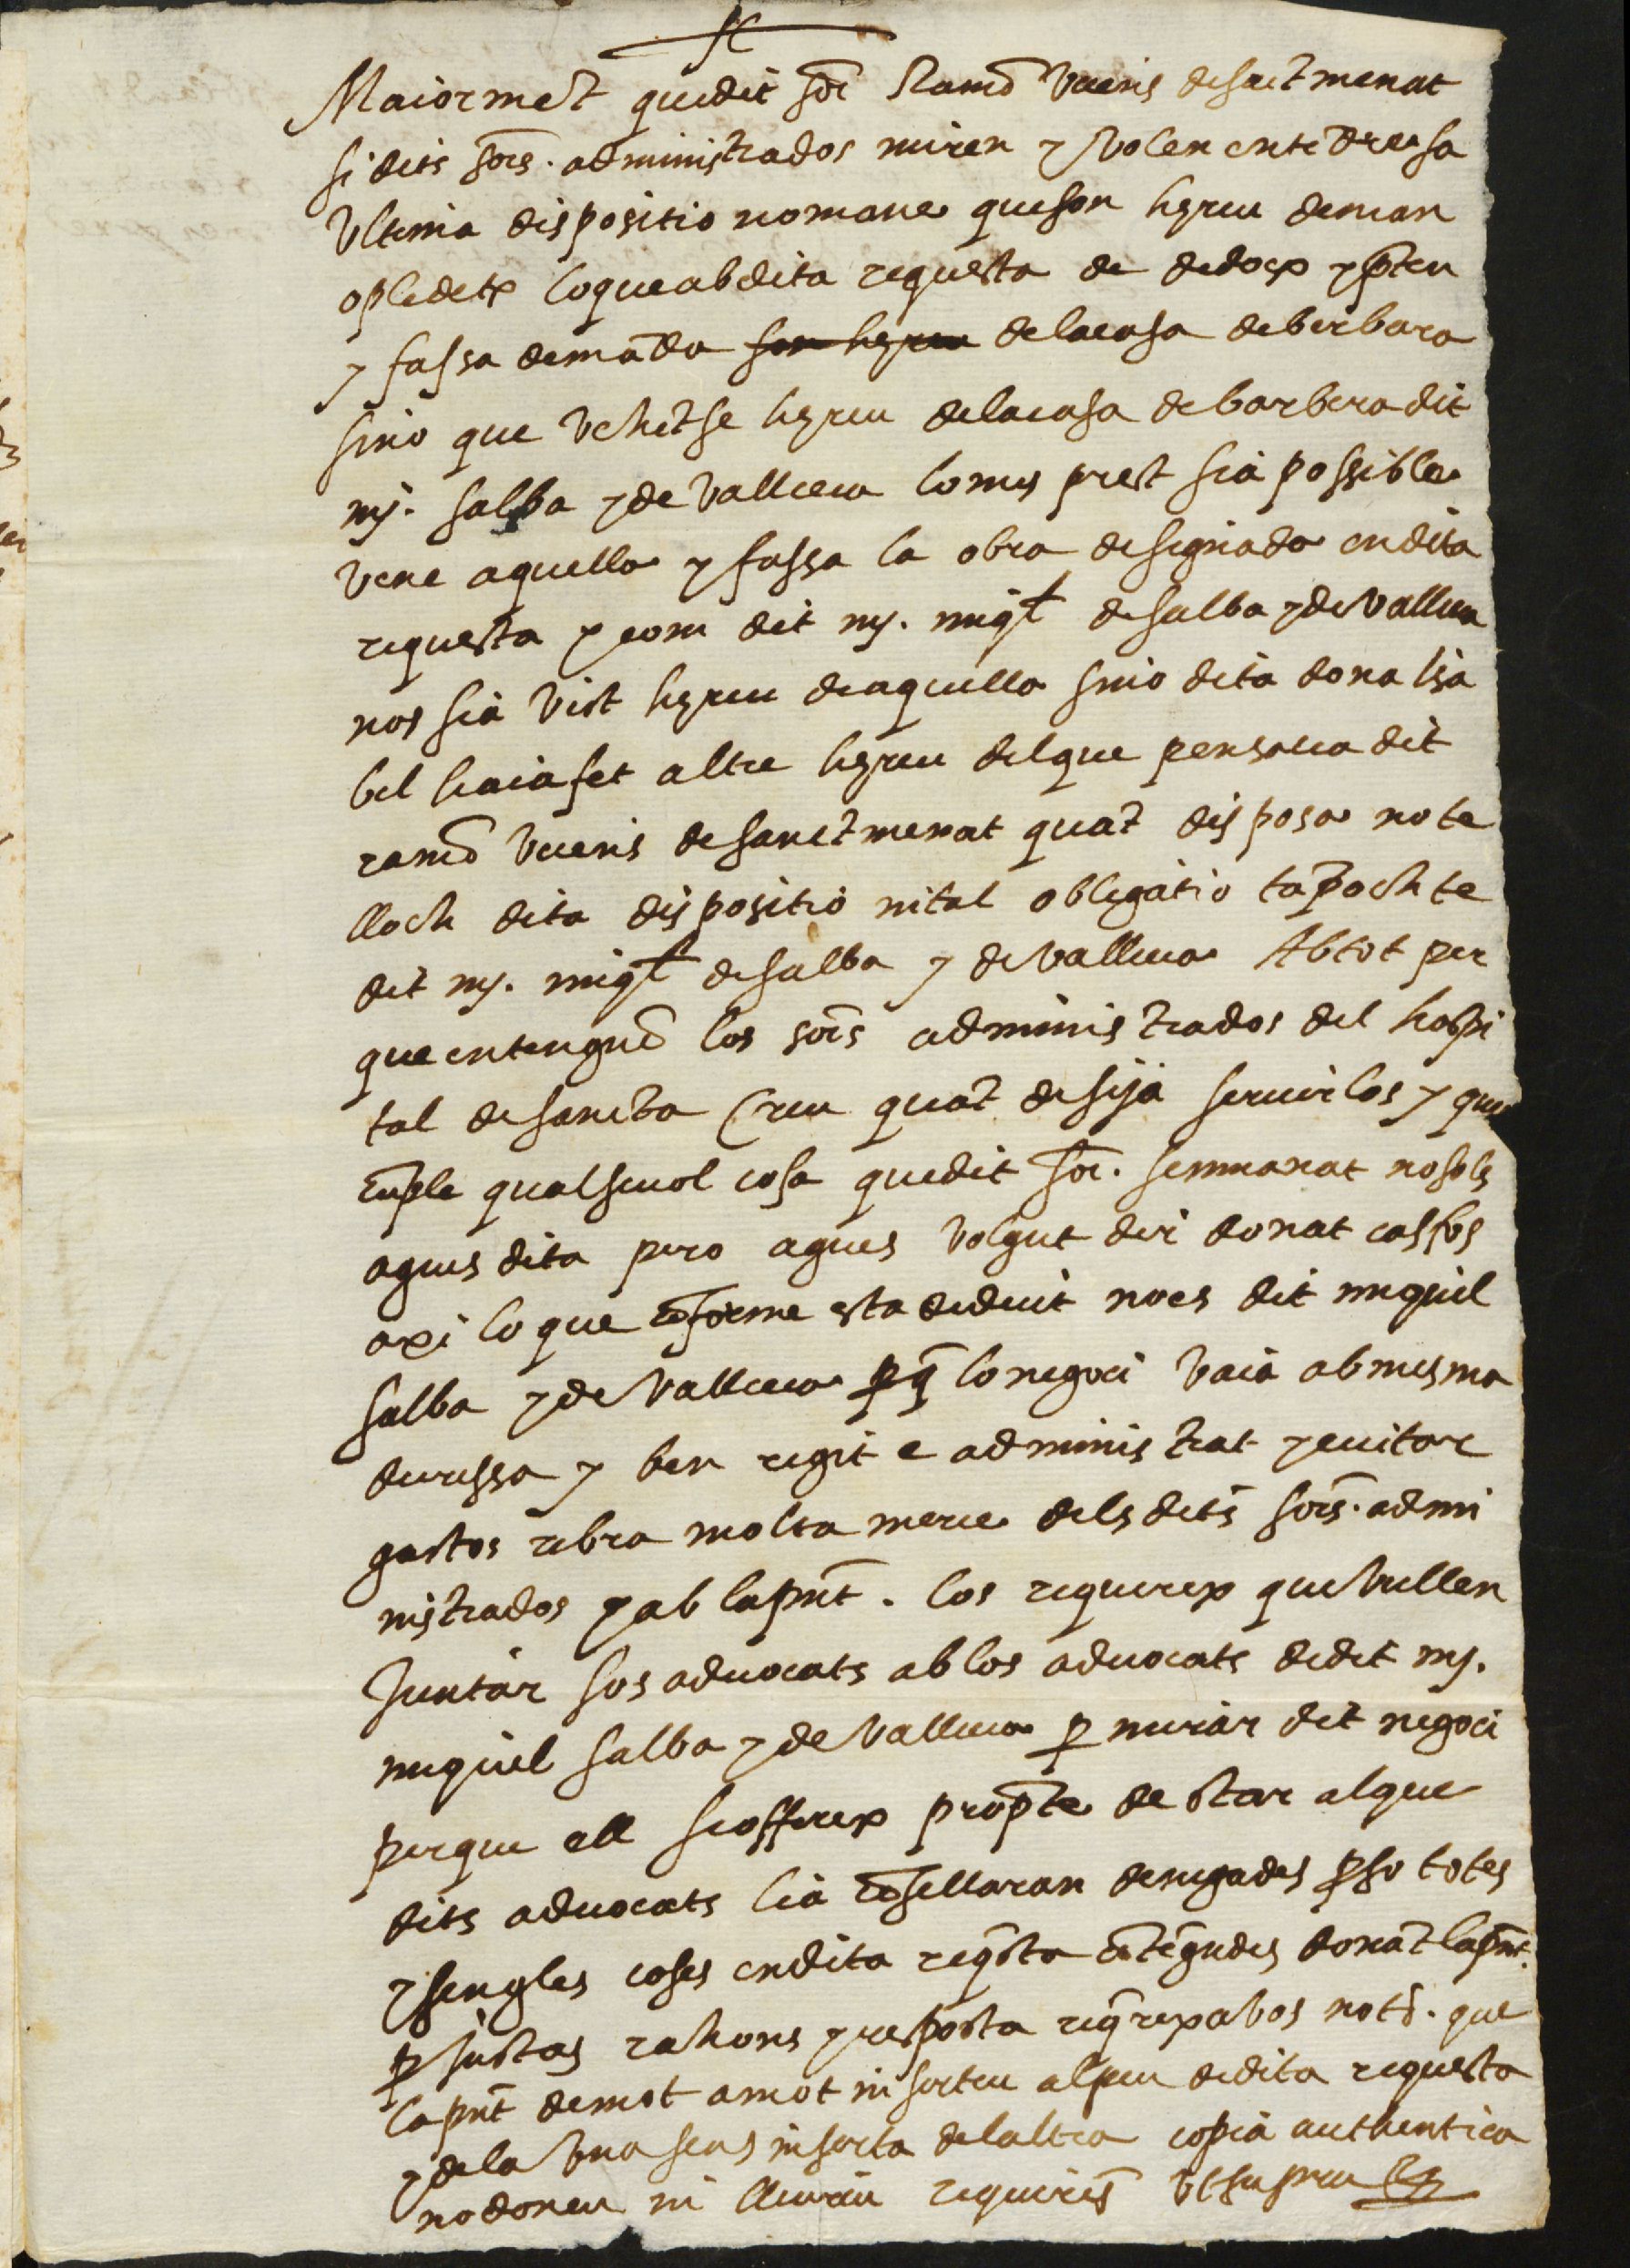 Maiorment quedit sor Ramo Vivens desentmenat
si dits sors. administrados miren y volen entedre sa
Ultima dispositio nomane queson hereu deman
opledetx loqueabdita requesta de dedoex y
y fassa demada son hereu delacasa deberbara
sino que vehetse hereu delacasa debarbera dit
mj. salba y de Vallseca lomes prest sia possible
vene aquella y fassa la obra designada endita
requesta y com dit mj. miql desalba y deVallseca
nos sia vist hereu deaquella sino dita dona lisa
bel haia fet altre hereu delque pensava dit
ramo Vivens desanctmenat quat disposa note
lloch dita dispositio nital obligatio tapoch te
dit mj. miql desalba y deVallseca Abtot per
queentenguen los sors administrados del hospi
tal desancta Creu quat desija servirlos y que
cuple qualsevol cosa quedit sor. senmanat nosols
agues dita pero agues volgut dir donat casfos
axi loque coforme esta dedvit noes dit miquel
salba y deVallseca pq lonegoci vaia abmesma
duressa y ben regit e administrat y evitar
gastos rebra molta merce delsdits sors. admi
nistrados y ab lapnt. los requerex quevullen
Juntar sos advocats ablos advocats dedit mj.
miquel salba y deVallseca p mirar dit negoci
perque ell seofferex propte de star alque
dits advocats lia cosellaran denegades pso totes
y sengles coses endita reqsta cotegudes donat lapnt.
p justas rahons y resposta reqrexavos not. que
lapnt demot amot inserteu alpeu dedita requesta
y dela una sens inserta delaltra copia authentica
nodoneu ni lliureu requeris Utsupra